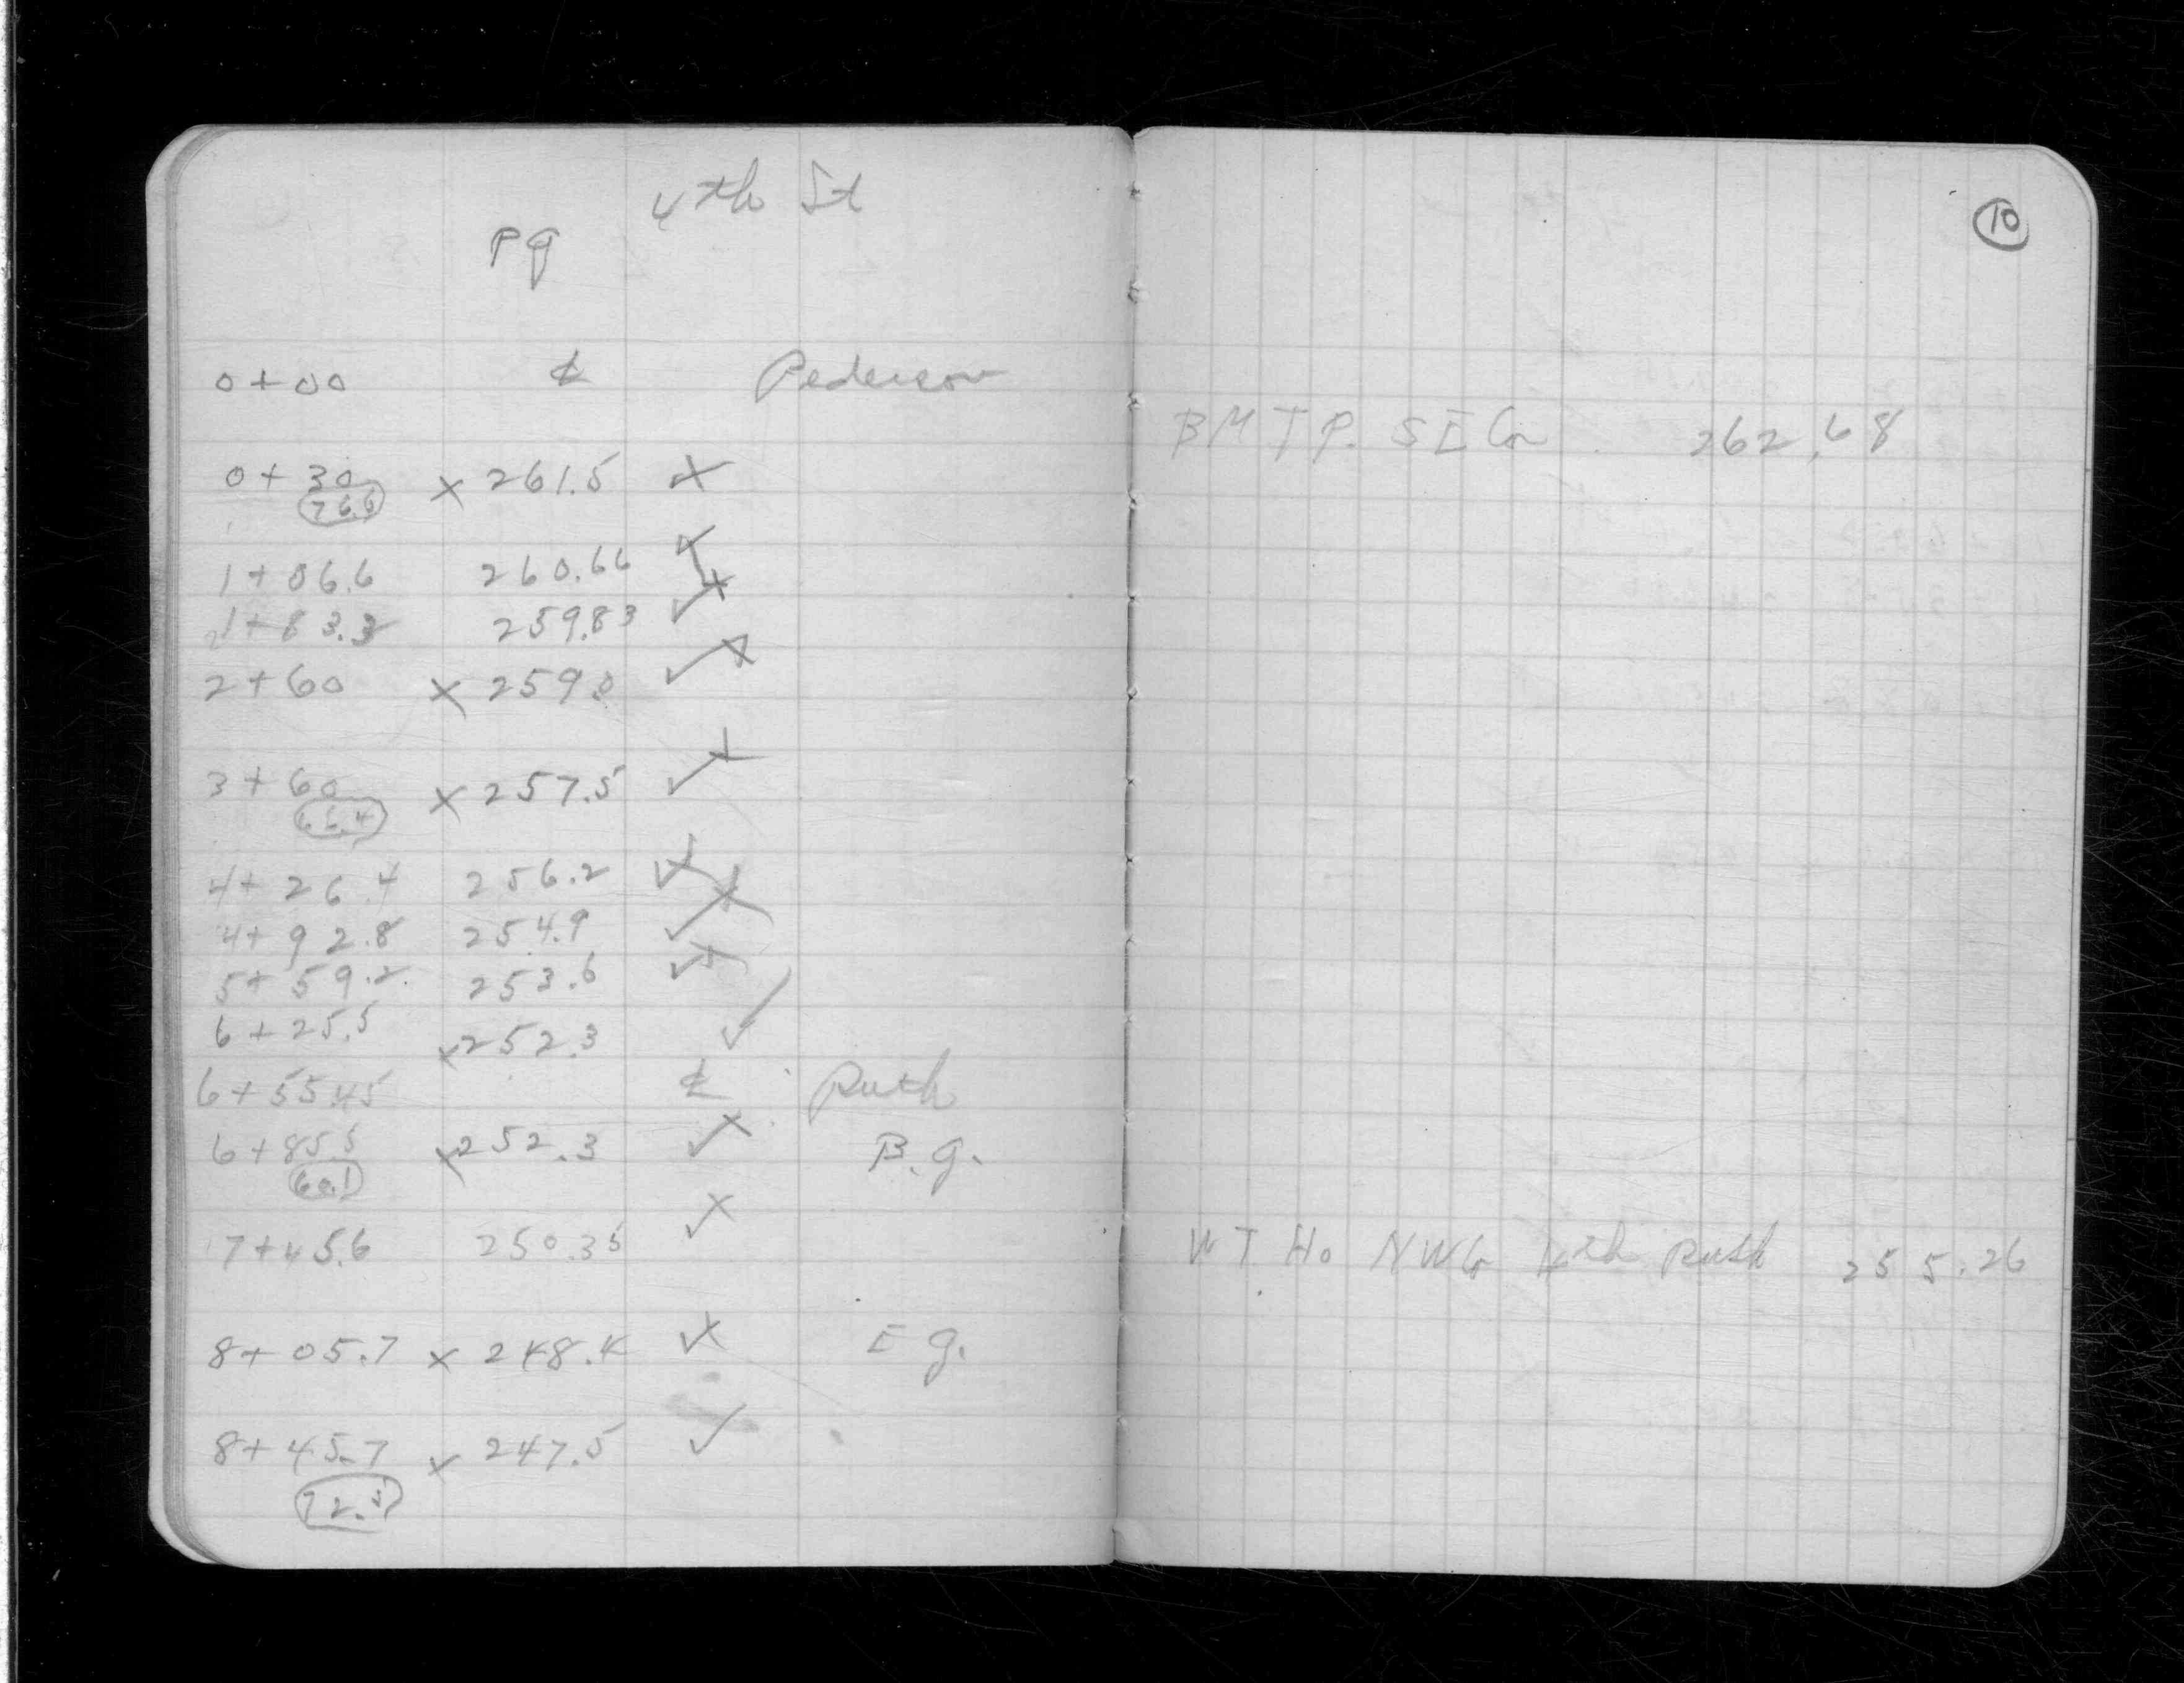 4th St
pg
0+00 ℄ Pederson
0+30 × 261.5 ×
76.6
1+06.6 260.66 ✓
1+83.3 259.83 ✓×
2+60 × 259.0 ✓×
3+60 × 257.5 ✓×
66.4
4+26.4 256.2 ✓×
4+92.8 254.9 ✓×
5+59.2 253.6 ✓×
6+25.5 ×252.3 ✓
6+55.45 ℄ Ruth
6+85.5 ×252.3 ✓× B.g.
60.1
7+45.6 250.35 ✓×
8+05.7 × 248.4 ✓× E g.
8+45.7 × 247.5 ✓
72.5
10
BM T P. S E Cor 262.68
W T Ho N W Cor 4th Ruth 255.26